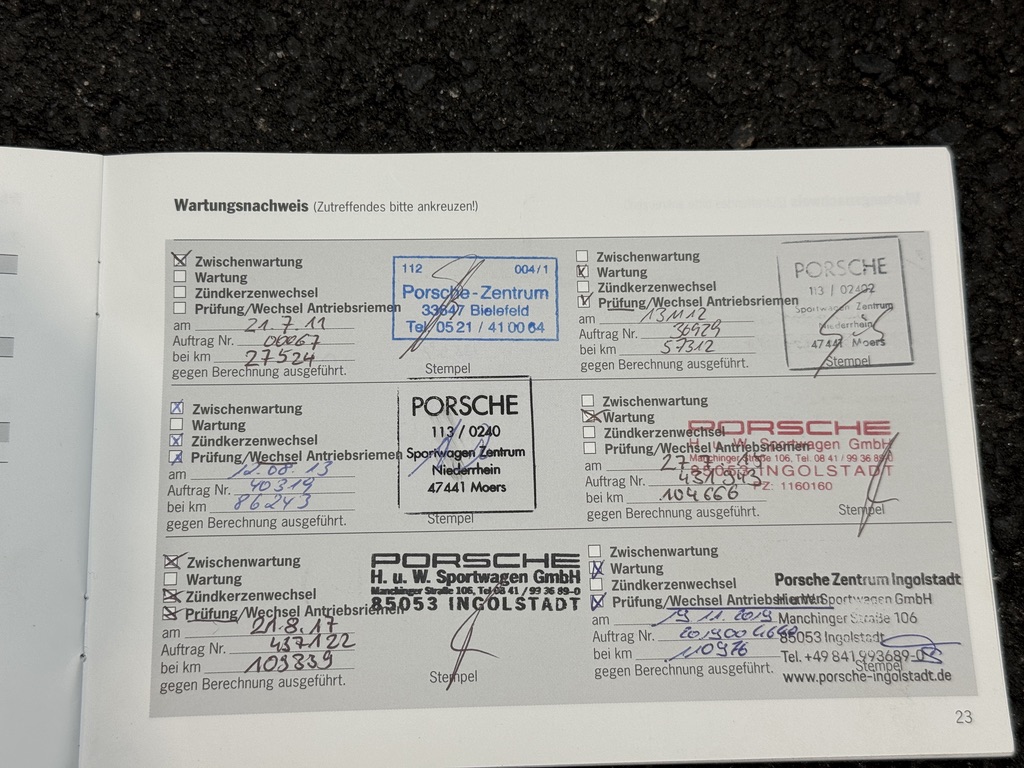 Wartungsnachweis (Zutreffendes bitte ankreuzen!)
Zwischenwartung
Wartung
Zündkerzenwechsel
Prüfung/Wechsel Antriebsriemen
am 21.7.11
Auftrag Nr. 06067
bei km 27524
gegen Berechnung ausgeführt.
112 004/1
Porsche-Zentrum
33647 Bielefeld
Tel. 05 21 / 41 00 64
Stempel
Zwischenwartung
Wartung
Zündkerzenwechsel
Prüfung/Wechsel Antriebsriemen
am
Auftrag Nr. 36929
bei km 57312
gegen Berechnung ausgeführt.
PORSCHE
113 / 02402
Sportwagen Zentrum
Niederrhein
47441 Moers
Stempel
Zwischenwartung
Wartung
Zündkerzenwechsel
Prüfung/Wechsel Antriebsriemen
am 12.08.13
Auftrag Nr. 40319
bei km 86243
gegen Berechnung ausgeführt.
PORSCHE
113 / 0240
Sportwagen Zentrum
Niederrhein
47441 Moers
Stempel
Zwischenwartung
Wartung
Zündkerzenwechsel
Prüfung/Wechsel Antriebsriemen
am
Auftrag Nr. 431943
bei km 104666
gegen Berechnung ausgeführt.
PORSCHE
H. u. W. Sportwagen GmbH
Manchinger Straße 106, Tel. 08 41 / 99 36 89-0
85053 INGOLSTADT
PZ: 1160160
Stempel
Zwischenwartung
Wartung
Zündkerzenwechsel
Prüfung/Wechsel Antriebsriemen
am 21.8.17
Auftrag Nr. 437122
bei km 109339
gegen Berechnung ausgeführt.
PORSCHE
H. u. W. Sportwagen GmbH
Manchinger Straße 106, Tel. 08 41 / 99 36 89-0
85053 INGOLSTADT
Stempel
Zwischenwartung
Wartung
Zündkerzenwechsel
Prüfung/Wechsel Antriebsriemen
am 19.11.2019
Auftrag Nr.
bei km 110976
gegen Berechnung ausgeführt.
Porsche Zentrum Ingolstadt
H. u. W. Sportwagen GmbH
Manchinger Straße 106
85053 Ingolstadt
Tel. +49 841 993689-0
Stempel
www.porsche-ingolstadt.de
23